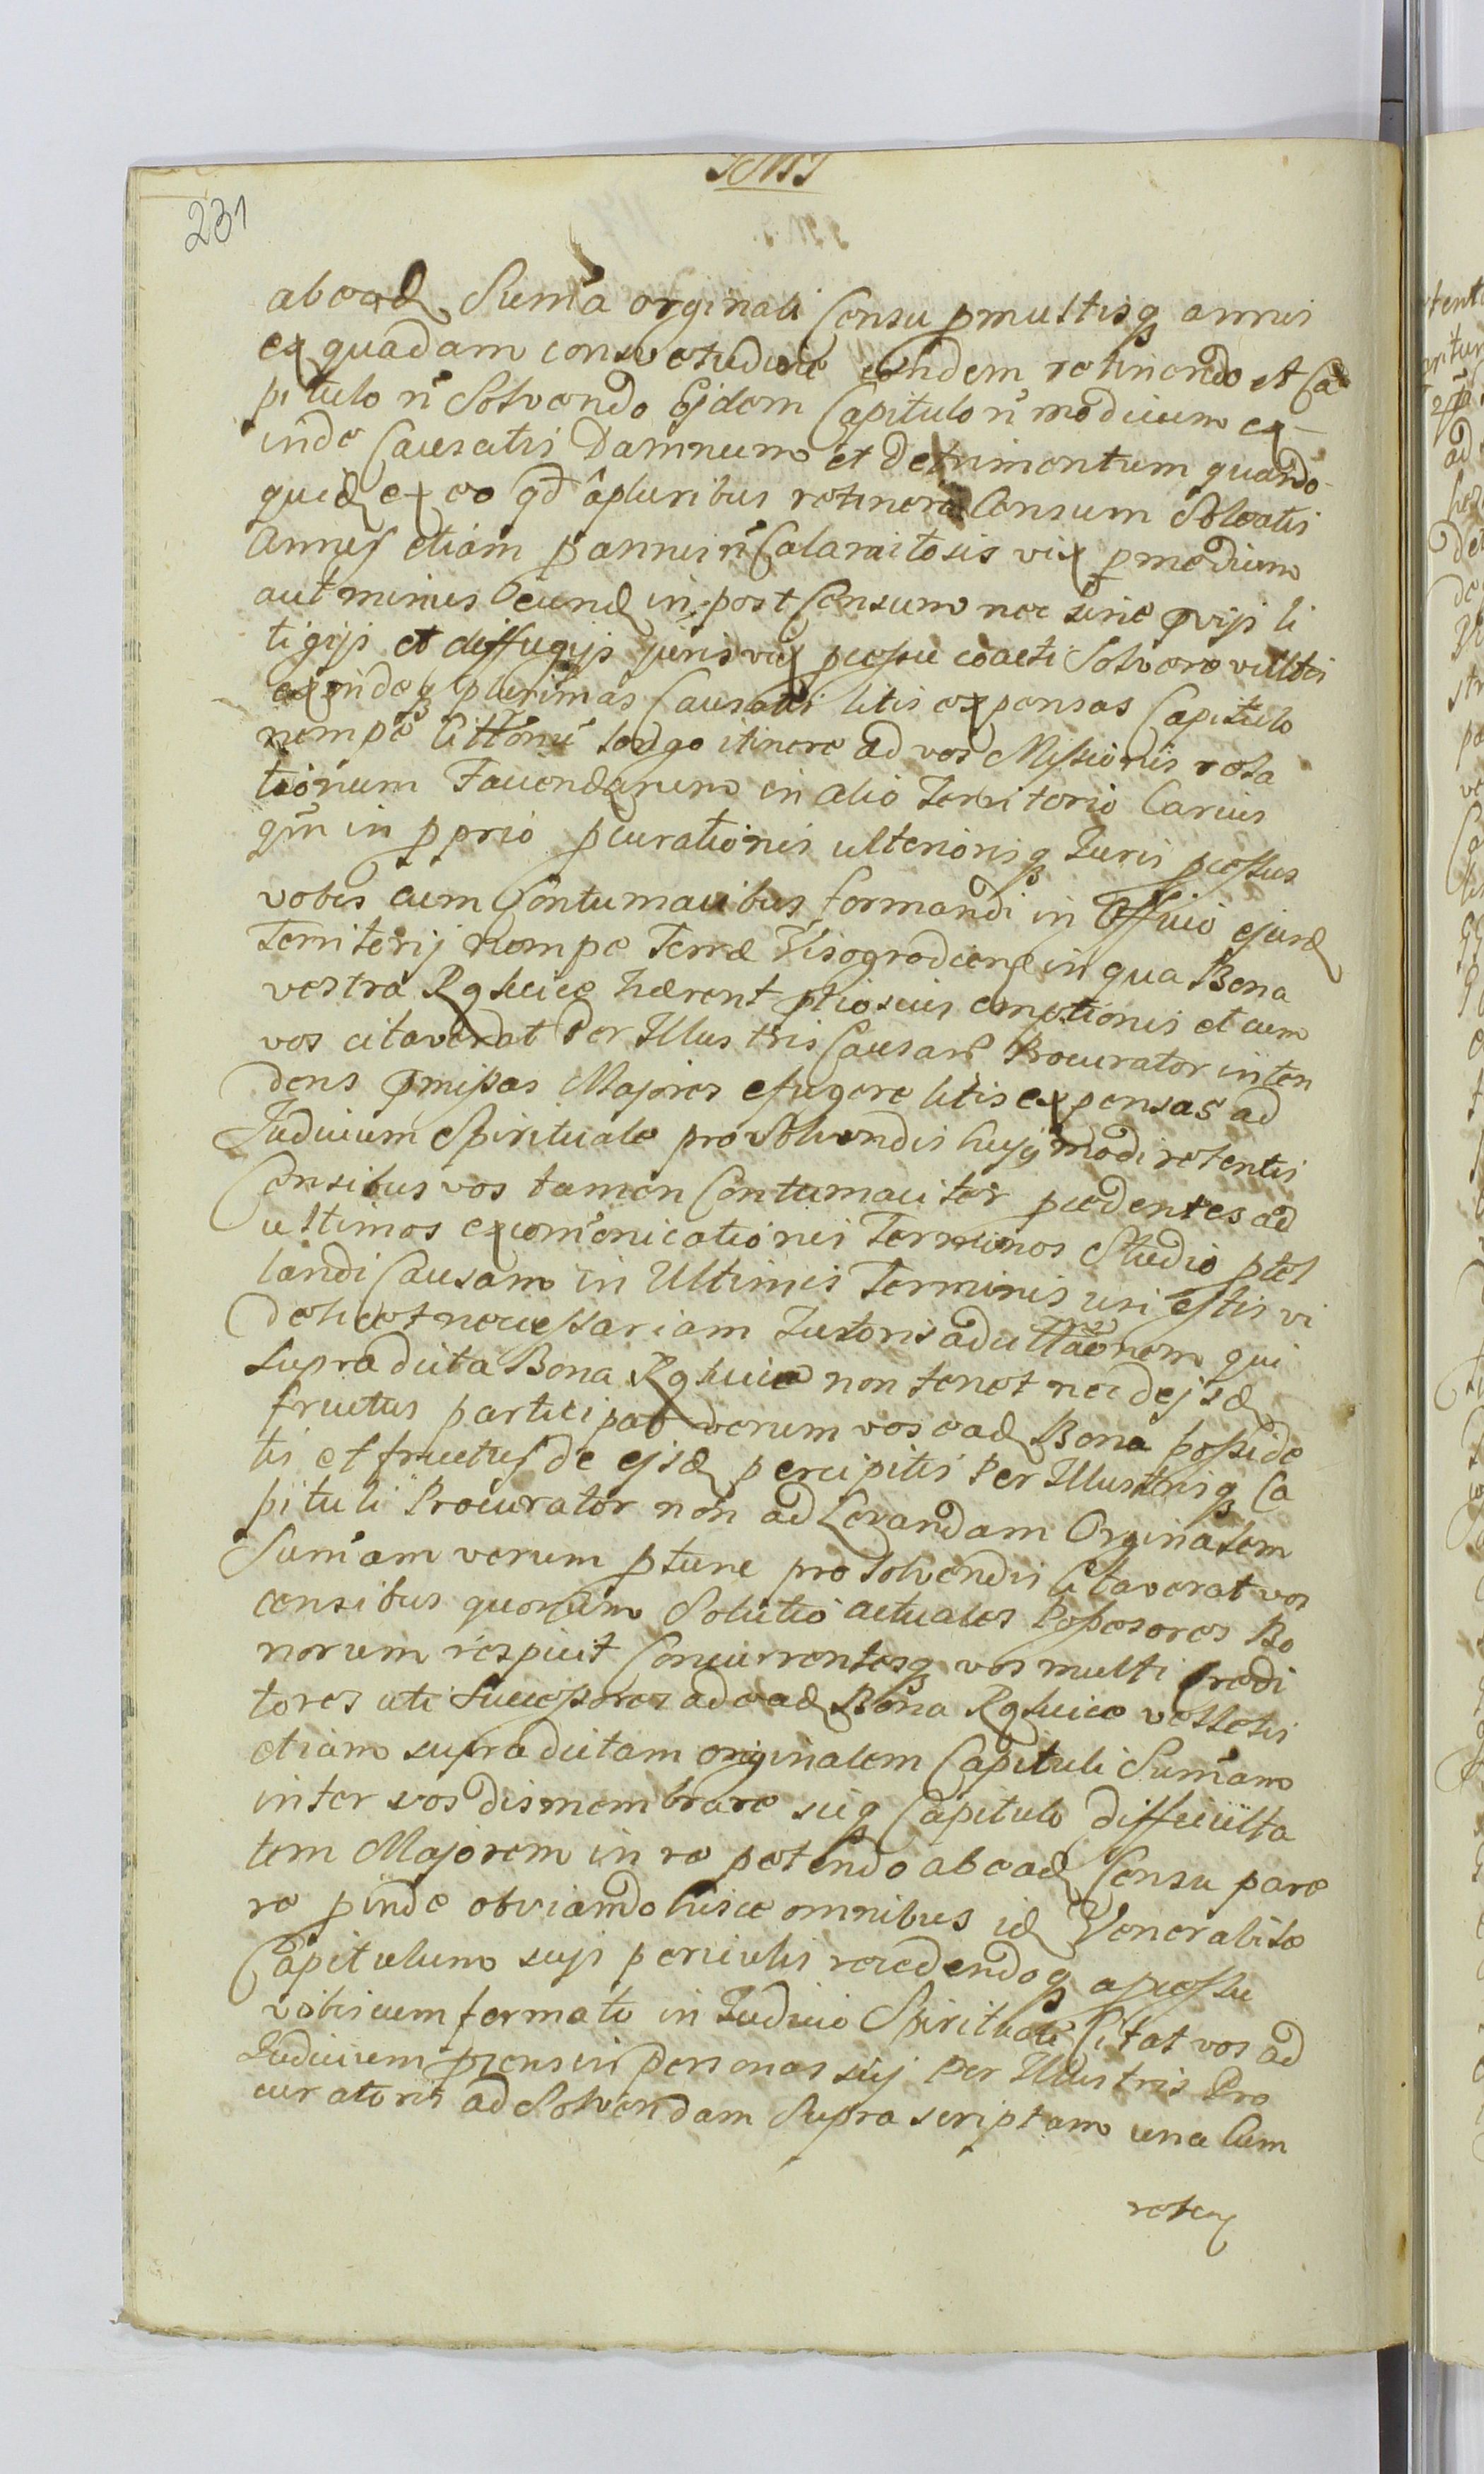 231
abead Suma orginali Censu pmultisq annis
ex quadam consvetudine eundem retinendo et Ca
pitulo n Solvendo Ejdem Capitulo n modicum ex
inde Causatis Damnum et detrimentum quando
quid ex eo qd apluribus retinere Censum Soleatis
Annis etiam p annis n Calamitosis vix p medium
aut minus eund in post Censum nec sine gvijs li
tigijs et diffugijs juris vix pcessu coacti Solvere vultis
exindeq plurimas Causatis litis expensas Capitulo
nempe longo itinere ad vos Missionis rela
tionum Faciendarum in alio Territorio Carius
qm in pprio pcurationis ulteriorisq Juris pcessus
vobis cum Contumacibus formandi in Officio ejusd
Territorij nempe Terræ Visogrodiens in qua Bona
vestra hærent ptiosius emptionis et cum
vos citaverat Per Illustris Causans Procurator inten
dens pmissas Majores efugere litis expensas ad
Judicium Spirituale pro Solvendis hujqmodi retentis
Censibus vos tamen Contumaciter pcedentes ad
ultimos excomonicationis Terminos Studio ptel
landi Causam in Ultimis Terminis usi estis vi
delicet necessariam Tutoris adcittaonem qui
supra dicta Bona non tenet nec dejsd
fructus participat verum vos ead Bona posside
tis et fructus de ejsd percipitis Per Illustrisq Ca
pituli Procurator non ad Levandam Orginalem
Sumam verum ptunc pro Solvendis Citaverat vos
censibus quorum Solutio actuales Possesores Bo
norum respicit Concurrentesq vos multi Credi
tores uti Successores ad ead Bona velletis
etiam supra dictam originalem Capituli Sumam
inter vos dismembrare sicq Capitulo difficulta
tem Majorem in re petendo abead Censu pare
re pinde obviando hisce omnibus id Venerabile
Capitulum suis periculis recedendoq apcessu
vobiscum formato in Judicio Spirituali Citat vos ad
Judicium pens in personas sui Per Illustris Pro
curatoris ad Solvendam Supra scriptam una Cum
reten